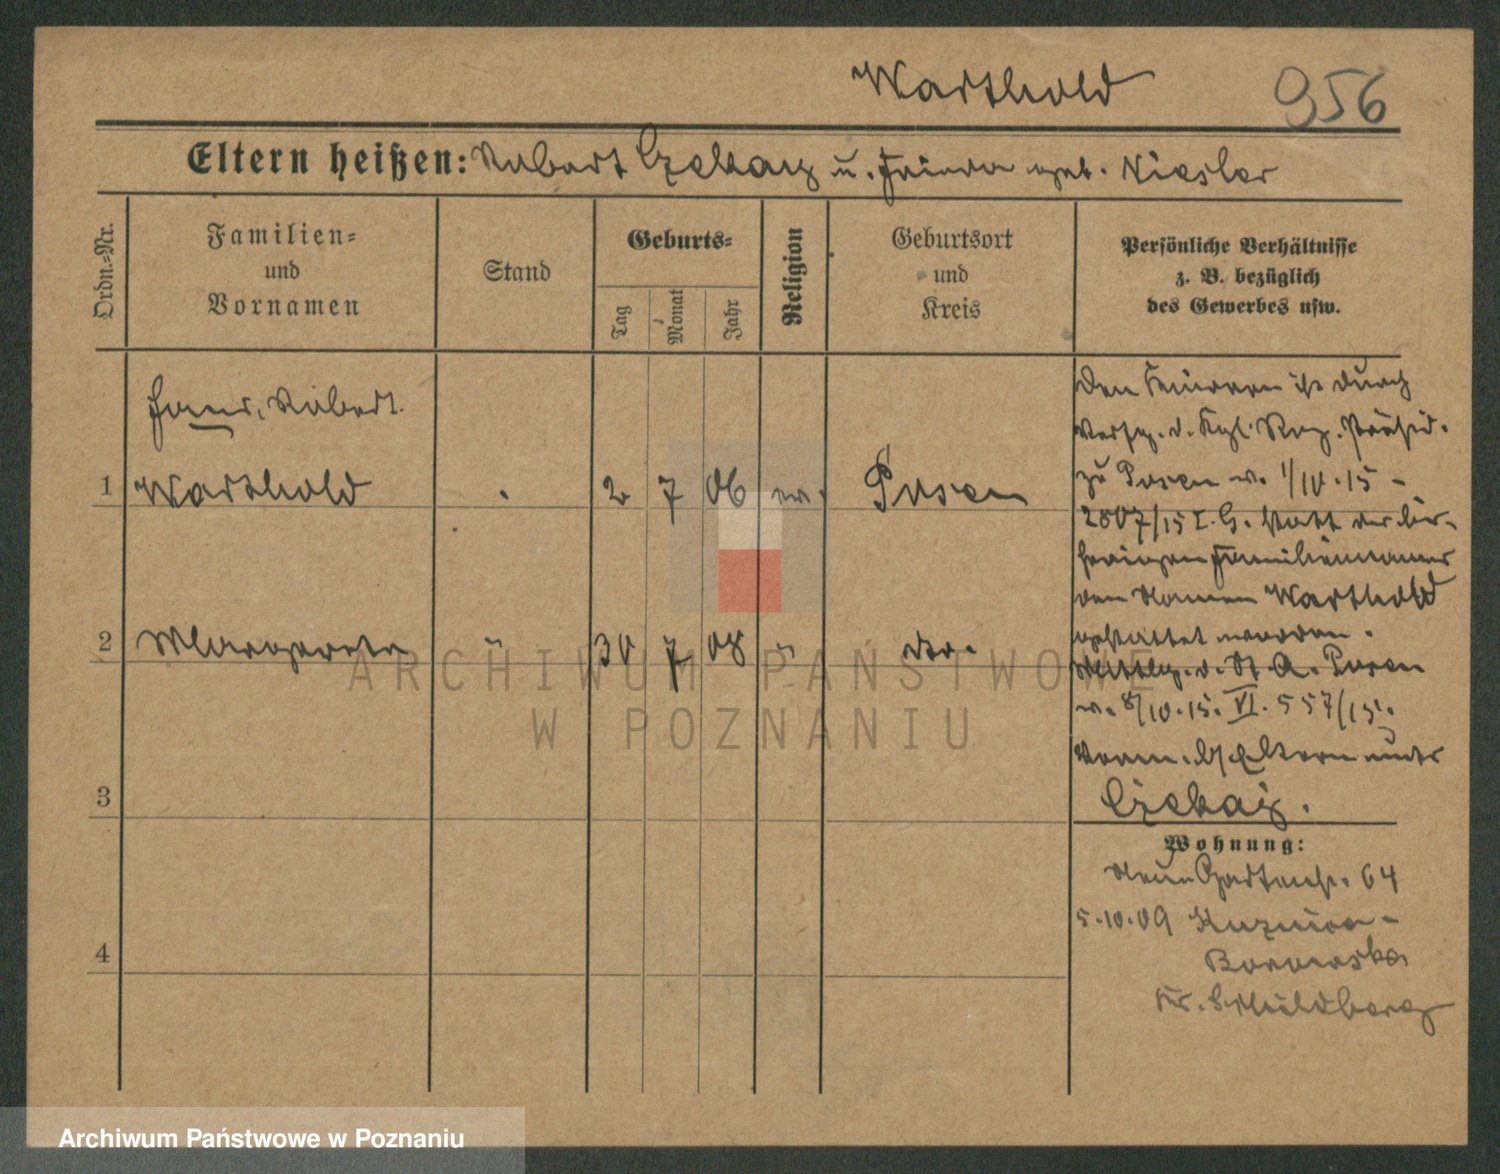 Warthold 956
Eltern heißen: Robert Czekaiz u. Frieda geb. Niesler
Ordn.-Nr.
Familien-
und
Vornamen
Stand
Geburts-
Tag
Monat
Jahr
Religion
Geburtsort
und
Kreis
Persönliche Verhältnisse
z. B. bezüglich
des Gewerbes usw.
Hans, Robert.
1 Warthold 2 7 06 ev. Posen
2 Margarete " 30 7 08 " do.
3
4
Den Kindern ist durch
Verfg. d. Kgl. Reg. Präsid.
zu Posen v. 1/10.15 -
2807/15 I. G. statt des bis-
herigen Familiennamens
der Namen Warthold
gestattet worden.
Mittlg. d. St. A. Posen
v. 8/10.15. VI. 557/15.
Vorm. b/ Eltern unter
Czekaiz.
Wohnung:
Neue Gartenstr. 64
5.10.09 Kuznica-
Bobrowska
Kr. Schildberg
ARCHIWUM PAŃSTWOWE
W POZNANIU
Archiwum Państwowe w Poznaniu